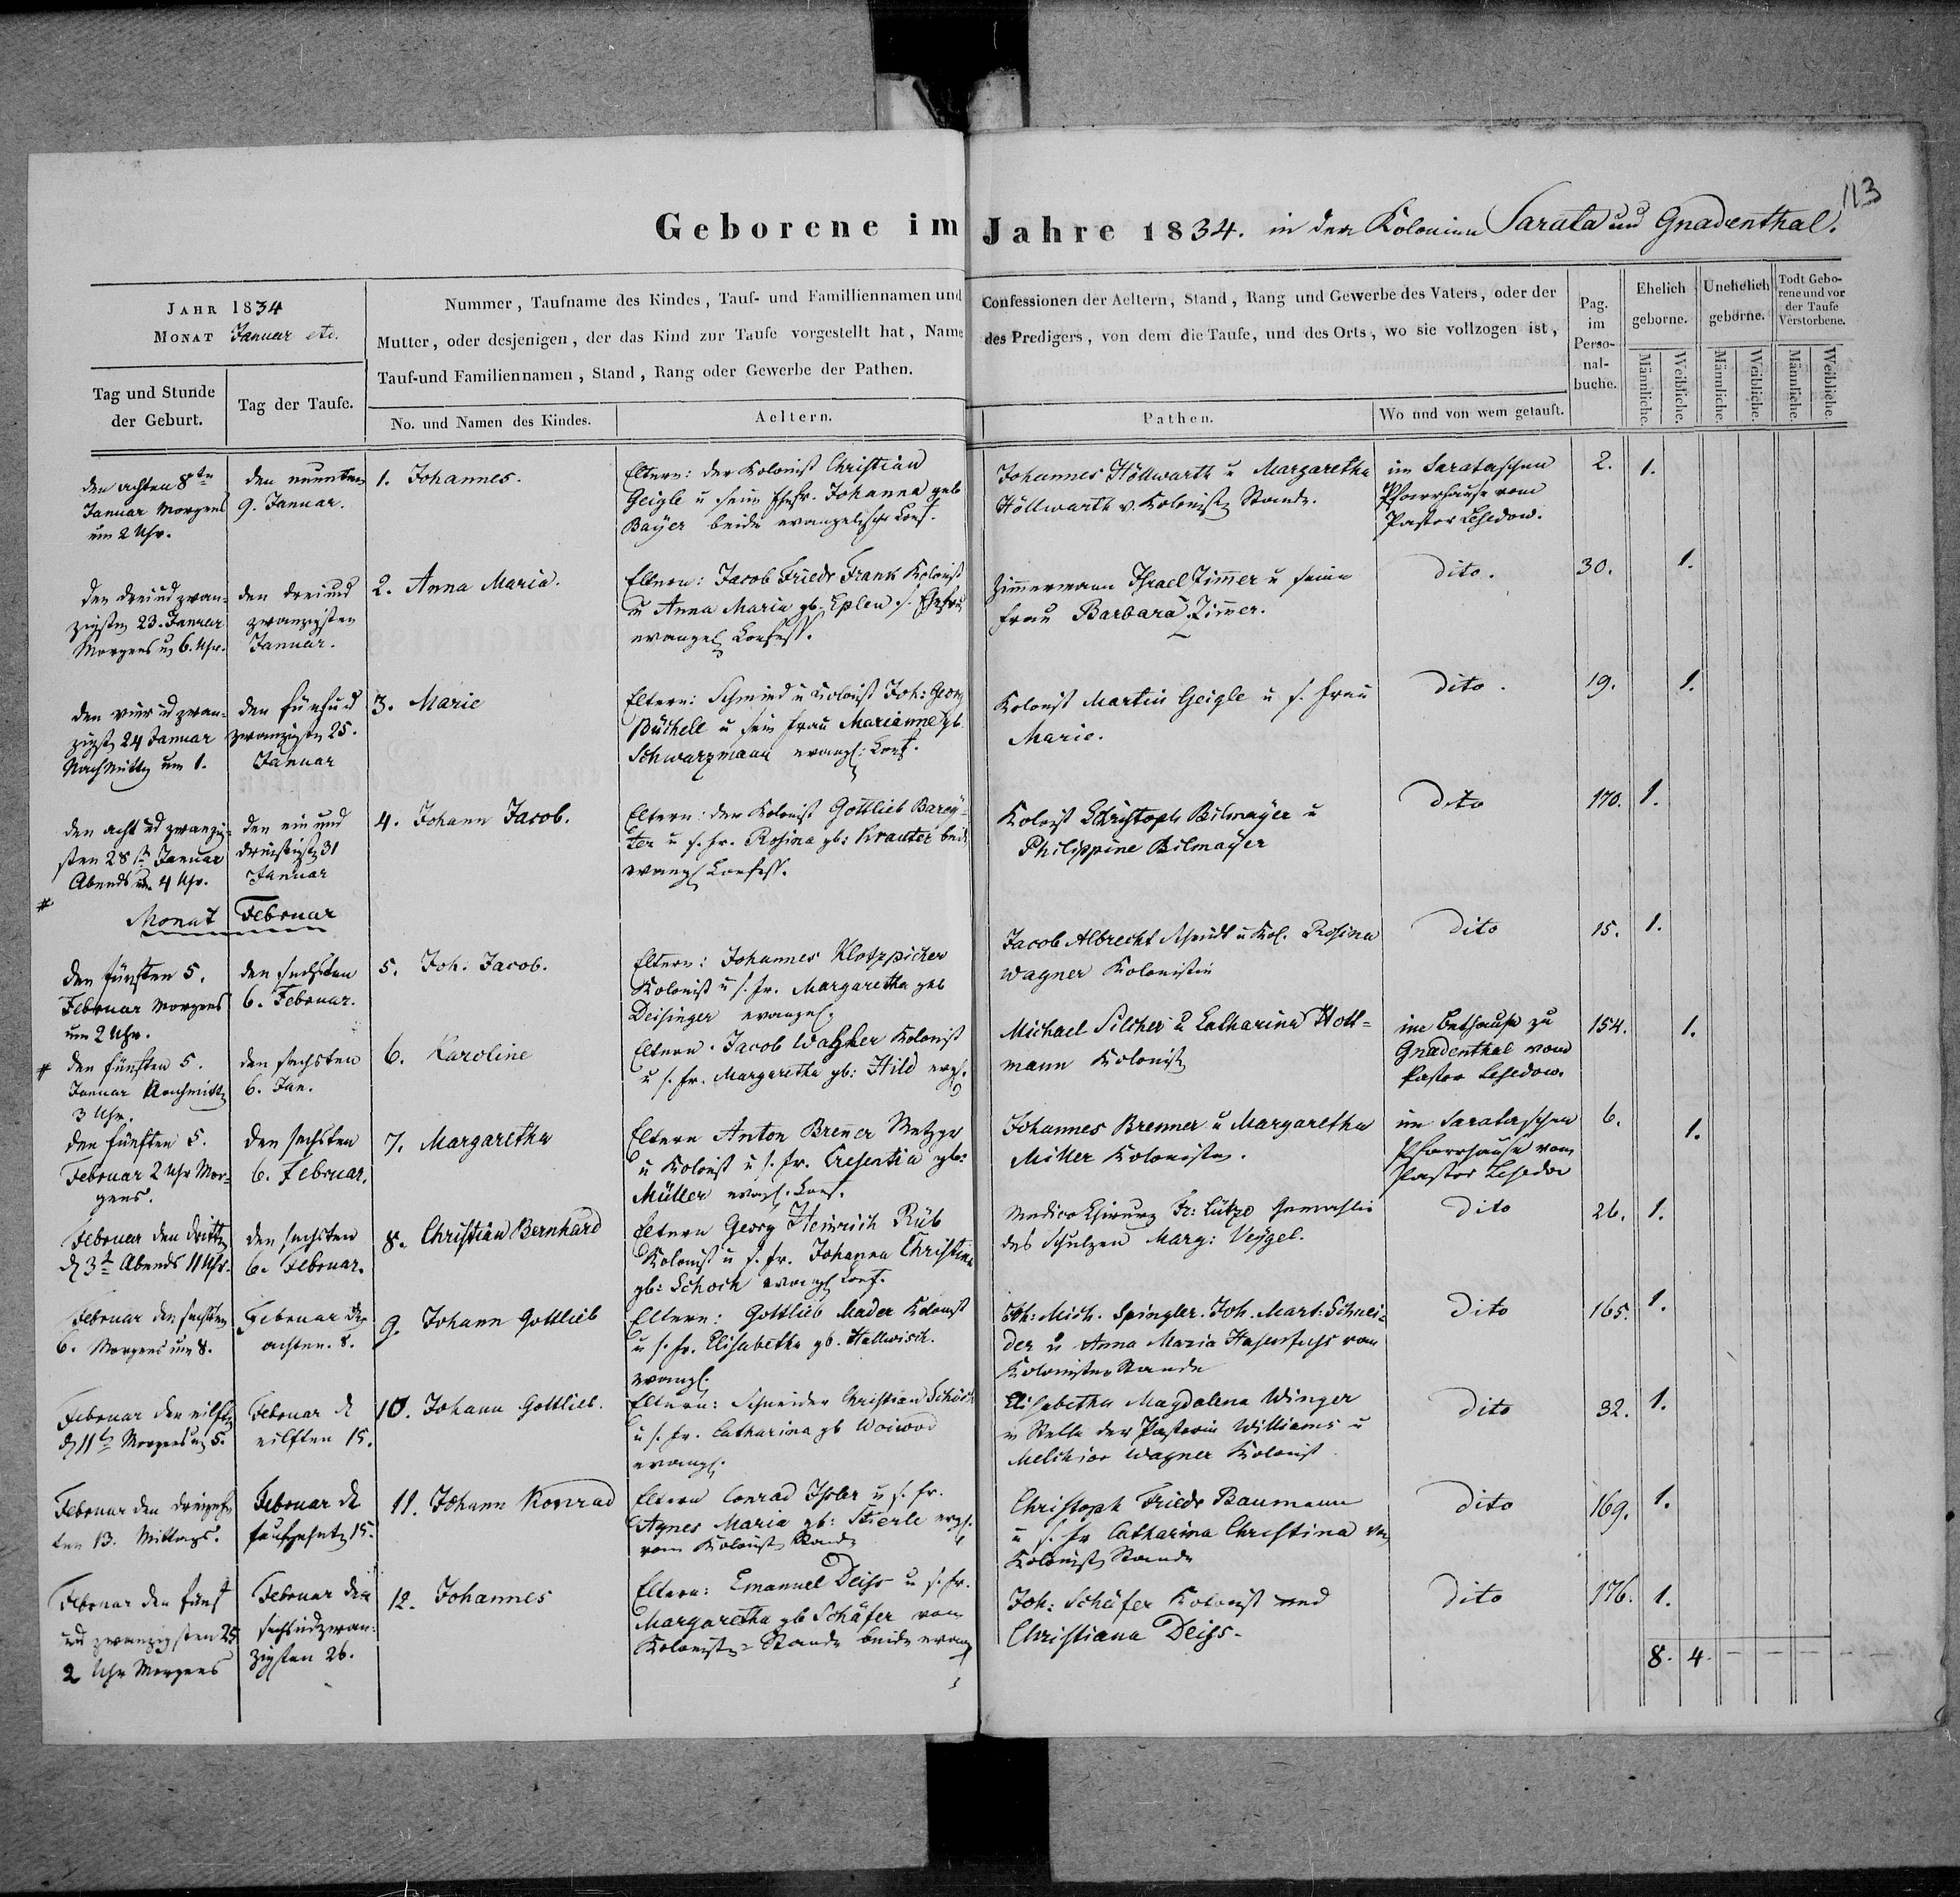 113
Geborene im Jahre 1834. in den Kolonien Sarata und Gnadenthal.
JAHR 1834
MONAT Januar etc.
Tag und Stunde
der Geburt.
Tag der Taufe.
Nummer, Taufname des Kindes, Tauf- und Familliennamen und
Mutter, oder desjenigen, der das Kind zur Taufe vorgestellt hat, Name
Tauf-und Familiennamen, Stand, Rang oder Gewerbe der Pathen.
No. und Namen des Kindes.
Aeltern.
Confessionen der Aeltern, Stand, Rang und Gewerbe des Vaters, oder der
des Predigers, von dem die Taufe, und des Orts, wo sie vollzogen ist,
Pathen.
Wo und von wem getauft.
Pag.
im
Perso-
nal-
buche.
Ehelich
geborne.
Unehelich
geborne.
Todt Gebo-
rene und vor
der Taufe
Verstorbene.
Männliche.
Weibliche.
Männliche.
Weibliche.
Männliche.
Weibliche.
den achten 8ten
Januar Morgens
um 2 Uhr.
den neunten
9. Januar.
1. Johannes.
Eltern: der Kolonist Christian
Geigle u seine Ehefr. Johanna geb
Bayer beide evangelischer Conf.
Johannes Höllwarth u Margaretha
Höllwarth v. Kolonisten Stande.
im Sarataschen
Pfarrhause vom
Pastor
2.
1.
den dreiundzwan-
zigsten 23. Januar
Morgens um 6. Uhr.
den dreiund
zwanzigsten
Januar.
2. Anna Maria.
Eltern: Jacob Friedr Frank Kolonist
u Anna Maria gb. Eplen s. Ehefrau
evangel Confess.
Zimmermann Israel Zimmer u seine
Frau Barbara Zimmer.
dito.
30.
1.
den vier u zwan-
zigst 24 Januar
Nachmittg um 1.
den fünfund
zwanzigsten 25.
Januar
3. Marie
Eltern: Schmied u Kolonist Joh: Georg
Büchell u sein Frau Marianne gb
Schwarzmann evangl: Conf.
Kolonist Martin Geigle u s. Frau
Marie.
dito.
19.
1.
den acht ud zwanzig-
sten 28 Januar
Abends um 4 Uhr.
den ein und
dreissigst 31
Januar
4. Johann Jacob.
Eltern: der Kolonist Gottlieb Barey-
ter u s. fr. Rosina gb: Krauter beide
evangl Confess.
Kolonist Christoph Bilmayer u
Philippine Bilmayer
dito
170.
1.
#
Monat Februar
den fünften 5.
Februar Morgens
um 2 Uhr.
den sechsten
6. Februar.
5. Joh. Jacob.
Eltern: Johannes Klotzbücher
Kolonist u s. fr. Margaretha geb
Deisinger evangel.
Jacob Albrecht u Kol. Rosina
Wagner Kolonistin
dito
15.
1.
# den fünften 5.
Januar Nachmittg
3 Uhr.
den sechsten
6. Jan.
6. Karoline
Eltern. Jacob Kolonist
u s. fr. Margaretha gb: Hild evgl.
Michael Silcher u Catharina Holl-
mann Kolonist
im Bethause zu
Gnadenthal vom
Pastor
154.
1.
den fünften 5.
Februar 2 Uhr Mor-
gens.
den sechsten
6. Februar.
7. Margaretha
Eltern Anton Brenner Metzger
u Kolonist u s. fr. Cresentia gb:
Müller evgl. Conf.
Johannes Brenner u Margaretha
Müller Kolonisten.
im Sarataschen
Pfarrhause vom
Pastor
6.
1.
Februar den dritten
d 3t Abends 11 Uhr.
den sechsten
6. Februar.
8. Christian Bernhard
Eltern Georg Heinrich Rüb
Kolonist u s. fr. Johanna Christina
gb: Schoch evangl Conf.
Medico Chirurg Fr: Lützo Gemahlin
des Schulzen Marg: Veygel.
dito
26.
1.
Februar den sechsten
6. Morgens um 8.
Februar den
achten. 8.
9. Johann Gottlieb
Eltern: Gottlieb Mader Kolonist
u s. fr. Elisabetha gb. Hallwisch.
evangl.
Joh: Mich. Spingler. Joh. Mart. Schnei-
der u Anna Maria Hasenfuss vom
Kolonisten Stande
dito
165.
1.
Februar den eilften
d 11t Morgens um 5.
Februar d
eilften 15.
10. Johann Gottlieb.
Eltern: Schneider Christian Schöch
u s. fr. Catharina gb Woiwod
evangl.
Elisabetha Magdalena Winger
in Stelle der Pastorin Williams u
Melchior Wagner Kolonist
dito
32.
1.
Februar den dreizehn
ten 13. Mittags.
Februar d
funfzehnt 15.
11. Johann Konrad
Eltern Conrad Isler u s. fr.
Agnes Maria gb: Stierle evgl.
vom Kolonist Stand
Christoph Friedr Baumann
u s. fr Catharina Christina vom
Kolonist Stande
dito
169.
1.
Februar den fünf
und zwanzigsten 25
2 Uhr Morgens
Februar den
sechsundzwan-
zigsten 26.
12. Johannes
Eltern: Emanuel Deiss u s. fr.
Margaretha gb Schäfer vom
Kolonist-Stande beide evang
Joh: Schäfer Kolonist und
Christiana Deiss.
dito
176.
1.
8. 4. – – – –